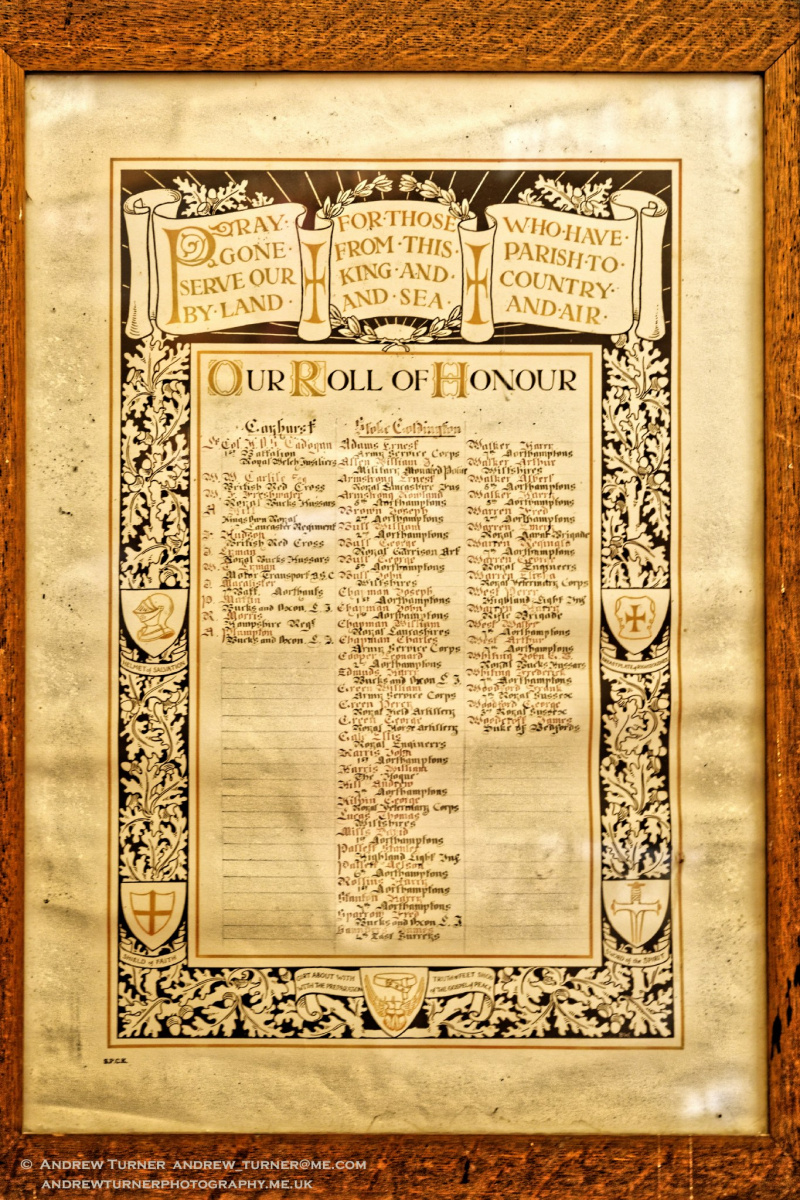 PRAY · FOR · THOSE WHO · HAVE ·
GONE · FROM · THIS · PARISH · TO ·
SERVE OUR KING · AND · COUNTRY ·
BY · LAND · AND · SEA · AND · AIR ·
OUR ROLL OF HONOUR
Gayhurst
Lt Col H.O.S. Cadogan
1st Battalion
Royal Welch Fusiliers
W. W. Carlile Esq
British Red Cross
W. J. Freshwater
Royal Bucks Hussars
A.
Kings Own Royal
Lancaster Regiment
Hudson
British Red Cross
Royal Bucks Hussars
W.
Motor Transport A.S.C
Macalister
7th Batt. Northants
P. Maffin
Bucks and Oxon L. I.
R. Morris
Hampshire Regt
A. Plumpton
Bucks and Oxon L. I.
Stoke Goldington
Adams Ernest
Army Service Corps
Allen William J.
Military Mounted Police
Armstrong Ernest
Royal Lancashire Fus
Armstrong Rowland
Northamptons
Brown Joseph
2nd Northamptons
Bull William
2nd Northamptons
Bull George
Royal Garrison Art
Bull George
Northamptons
Bull John
Wiltshires
Chapman Joseph
1st Northamptons
Chapman John
1st Northamptons
Chapman William
Royal Lancashires
Chapman Charles
Army Service Corps
Cooper Leonard
2nd Northamptons
Edmunds Harry
Bucks and Oxon L. I
Green William
Army Service Corps
Green Percy
Royal Field Artillery
Green George
Royal Horse Artillery
Ellis
Royal Engineers
Harris John
1st Northamptons
Harris William
The "Hogue"
Hill Andrew
7th Northamptons
Kilpin George
Royal Veterinary Corps
Lucas Thomas
Wiltshires
Mills David
1st Northamptons
Pallett Stanley
Highland Light Inf
Pallett Nelson
6th Northamptons
Rollins Harry
1st Northamptons
Stanton Harry
7th Northamptons
Sparrow Fred
Bucks and Oxon L. I
James
East Surreys
Walker Harry
7th Northamptons
Walker Arthur
Wiltshires
Walker Albert
6th Northamptons
Walker Harry
Northamptons
Warren Fred
2nd Northamptons
Warren
Royal Agent Brigade
Warren Reginald
7th Northamptons
Warren George
Royal Engineers
Warren Elisha
Royal Veterinary Corps
West Percy
Highland Light Inf
Warren Harry
Rifle Brigade
West Walter
7th Northamptons
West Arthur
7th Northamptons
Whiting John
Royal Bucks Hussars
Whiting Frederick
7th Northamptons
Woodford Frank
Royal Sussex
Woodford George
3rd Royal Sussex
Woodcroft James
Duke of Bedfords
HELMET of SALVATION
SHIELD of FAITH
GIRT ABOUT WITH TRUTH & FEET SHOD
WITH THE PREPARATION of THE GOSPEL of PEACE
S.P.C.K.
© ANDREW TURNER ANDREW_TURNER@ME.COM
ANDREWTURNERPHOTOGRAPHY.ME.UK